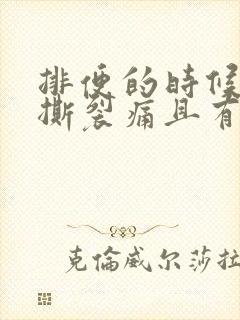 排便的时候
撕裂痛且有
克倫威尔莎拉